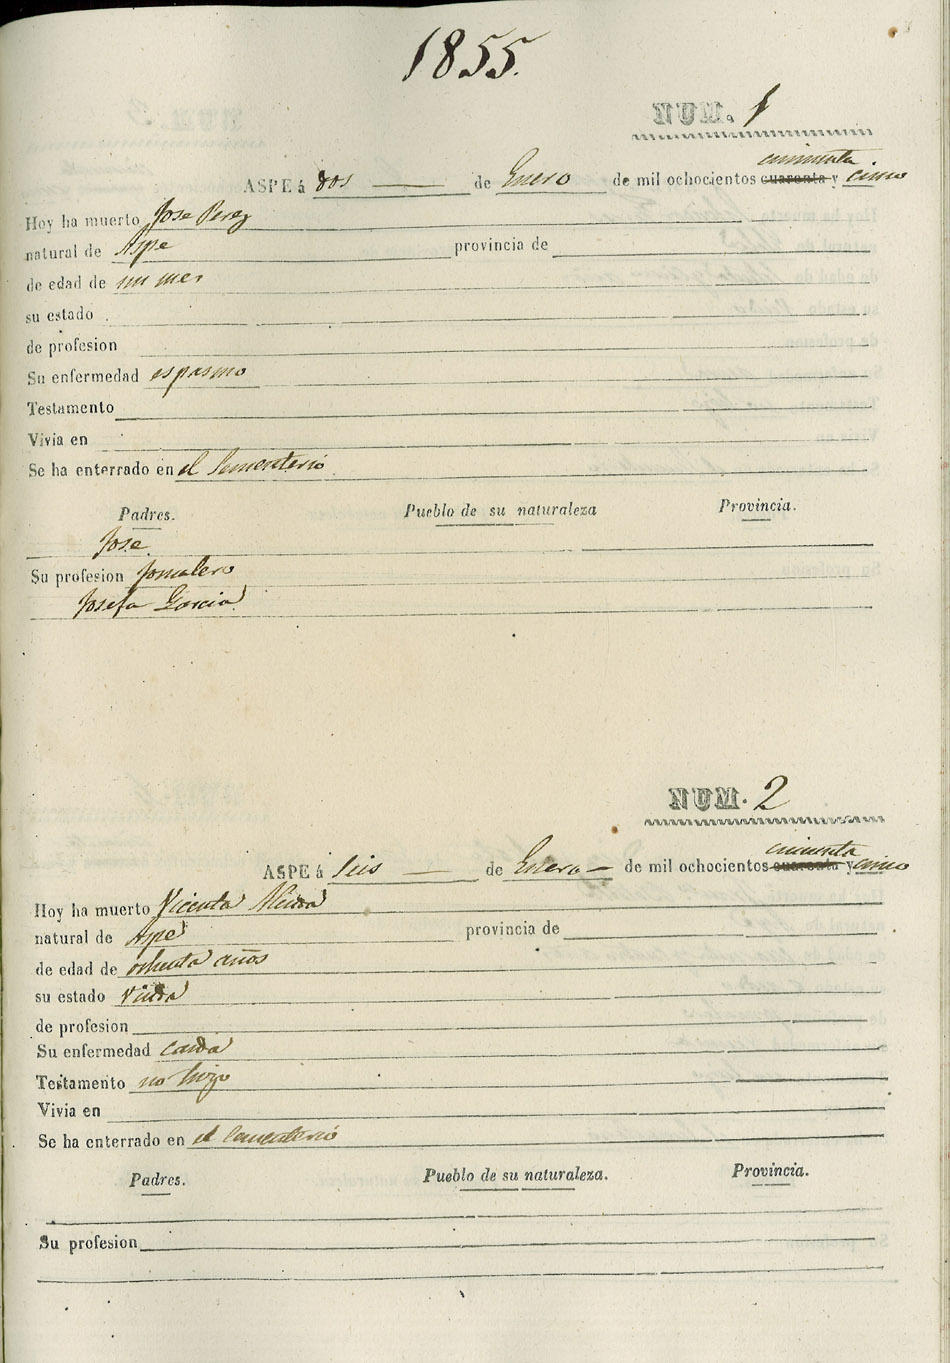 1855.
NUM. 1
cincuenta
ASPE á dos de Enero de mil ochocientos cuarenta y cinco
Hoy ha muerto Jose Perez
natural de Aspe provincia de
de edad de un mes
su estado
de profesion
Su enfermedad espasmo
Testamento
Vivia en
Se ha enterrado en el Sementerio
Padres. Pueblo de su naturaleza Provincia.
Jose
Su profesion Jornalero
Josefa Garcia
NUM. 2
cincuenta
ASPE á Seis de Enero de mil ochocientos cuarenta y cinco
Hoy ha muerto Vicenta
natural de Aspe provincia de
de edad de ochenta años
su estado Viuda
de profesion
Su enfermedad caida
Testamento no hizo
Vivia en
Se ha enterrado en el Cementerio
Padres. Pueblo de su naturaleza. Provincia.
Su profesion